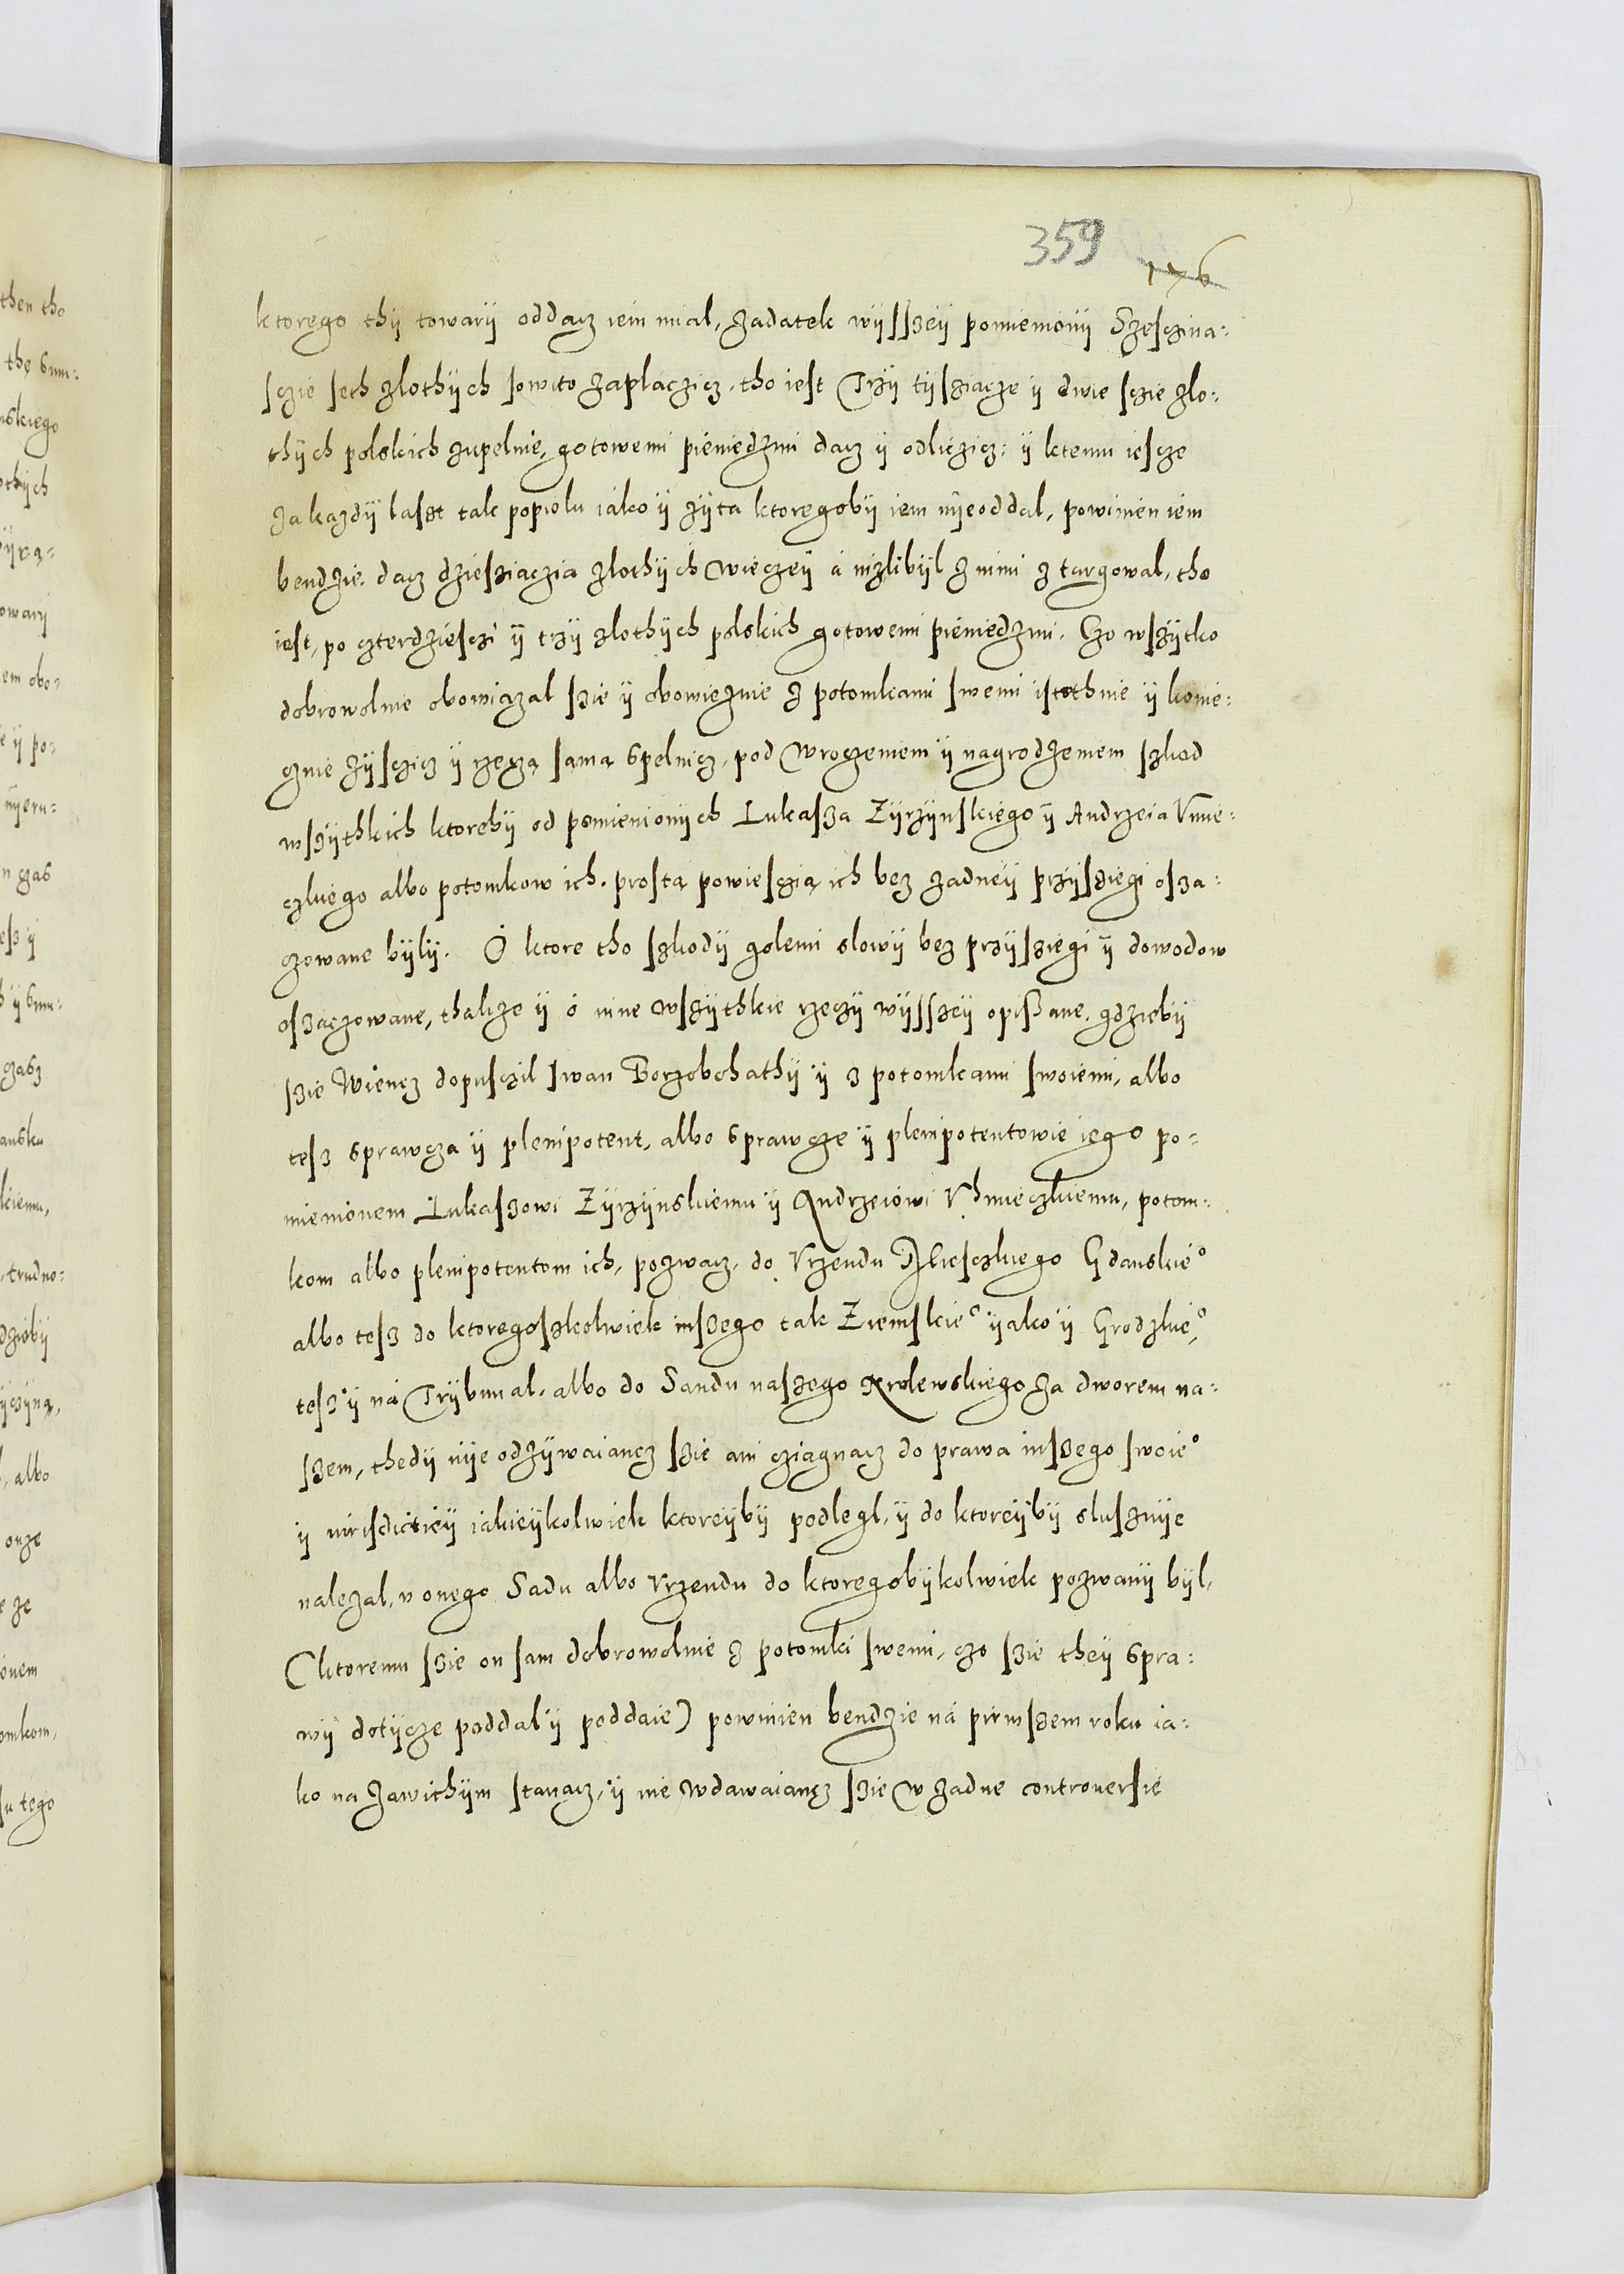 359 176
ktorego thÿ towarÿ oddacz iem mial, zadatek wÿsszeÿ pomienionÿ Szesczina:
sczie seth zlothÿch sowito zaplaczicz, tho iest Trzÿ tÿsziacze ÿ dwie sczie zlo:
thÿch polskich zupelnie, gotowemi pieniedzmi dacz ÿ odliczicz: ÿ ktemu iescze
za kazdÿ laszt tak popiolu iako ÿ zÿta ktoregobÿ iem nÿeoddal, powinien iem
bendzie dacz dziesziaczia zlothÿch wieczeÿ á nizlibÿl z nimi z targowal, tho
iest, po czterdziesczi ÿ trzÿ zlothÿch polskich gotowemi pieniedzmi. Czo wszÿtko
dobrowolnie obowiazal szie ÿ obowieznie z potomkami swemi istothnie ÿ konie:
cznie zÿsczicz ÿ rzeczą samą spelnicz, pod wroczeniem ÿ nagrodzeniem szkod
wszÿthkich ktorebÿ od pomienionÿch Lukasza Zÿrzÿnskiego ÿ Andrzeia Vmie:
czkiego albo potomkow ich, prostą powiesczią ich bez zadneÿ przÿsziegi osza:
czowane bÿlÿ. O ktore tho szkodÿ golemi slowÿ bez przÿsziegi ÿ dowodow
oszaczowane, thakze ÿ o inne wszÿthkie rzeczÿ wÿsszeÿ opissane, gdziebÿ
szie wiencz dopusczil Iwan Borzobohathÿ ÿ z potomkami swoiemi, albo
tesz sprawcza ÿ plenipotent, albo sprawcze ÿ plenipotentowie iego po:
mienionem Lukaszowi Zÿrzÿnskiemu ÿ Andrzeiowi Vhmieczkiemu, potom:
kom albo plenipotentom ich, pozwacz, do Vrzendu Mieszczkiego Gdanskie°
albo tesz do ktoregoszkolwiek inszego tak Ziemskie° ÿako ÿ Grodzkie°,
tesz ÿ ná Trÿbunal, albo do Sandu naszego Krolewskiego za dworem na:
szem, thedÿ nÿe odzÿwaiancz szie ani cziagnacz do prawa inszego swoie°
ÿ iurisdictieÿ iakieÿkolwiek ktoreÿbÿ podlegl, ÿ do ktoreÿbÿ slusznÿe
nalezal, v onego Sadu albo vrzendu do ktoregobÿkolwiek pozwanÿ bÿl,
(ktoremu szie on sam dobrowolnie z potomki swemi, czo szie theÿ spra:
wÿ dotÿcze poddal ÿ poddaie) powinien bendzie ná pirwszem roku ia:
ko na zawithÿm stanacz, ÿ nie wdawaiancz szie w zadne controuersie